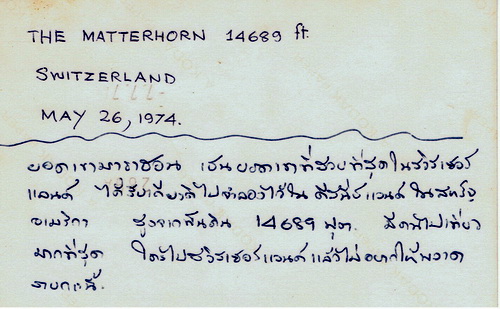 THE MATTERHORN 14689 ft.
SWITZERLAND
MAY 26, 1974.
ยอดเขามาธาฮอน เป็นยอดเขาที่สวยที่สุดในสวิสเซอร์
แลนด์ ได้รับเกียรติไปจำลองไว้ใน ดีสนีย์แลนด์ ในสหรัฐ
อเมริกา สูงจากพื้นดิน 14689 ฟุต. มีคนไปเที่ยว
มากที่สุด ใครไปสวิสเซอร์แลนด์แล้วไม่อยากให้พลาด